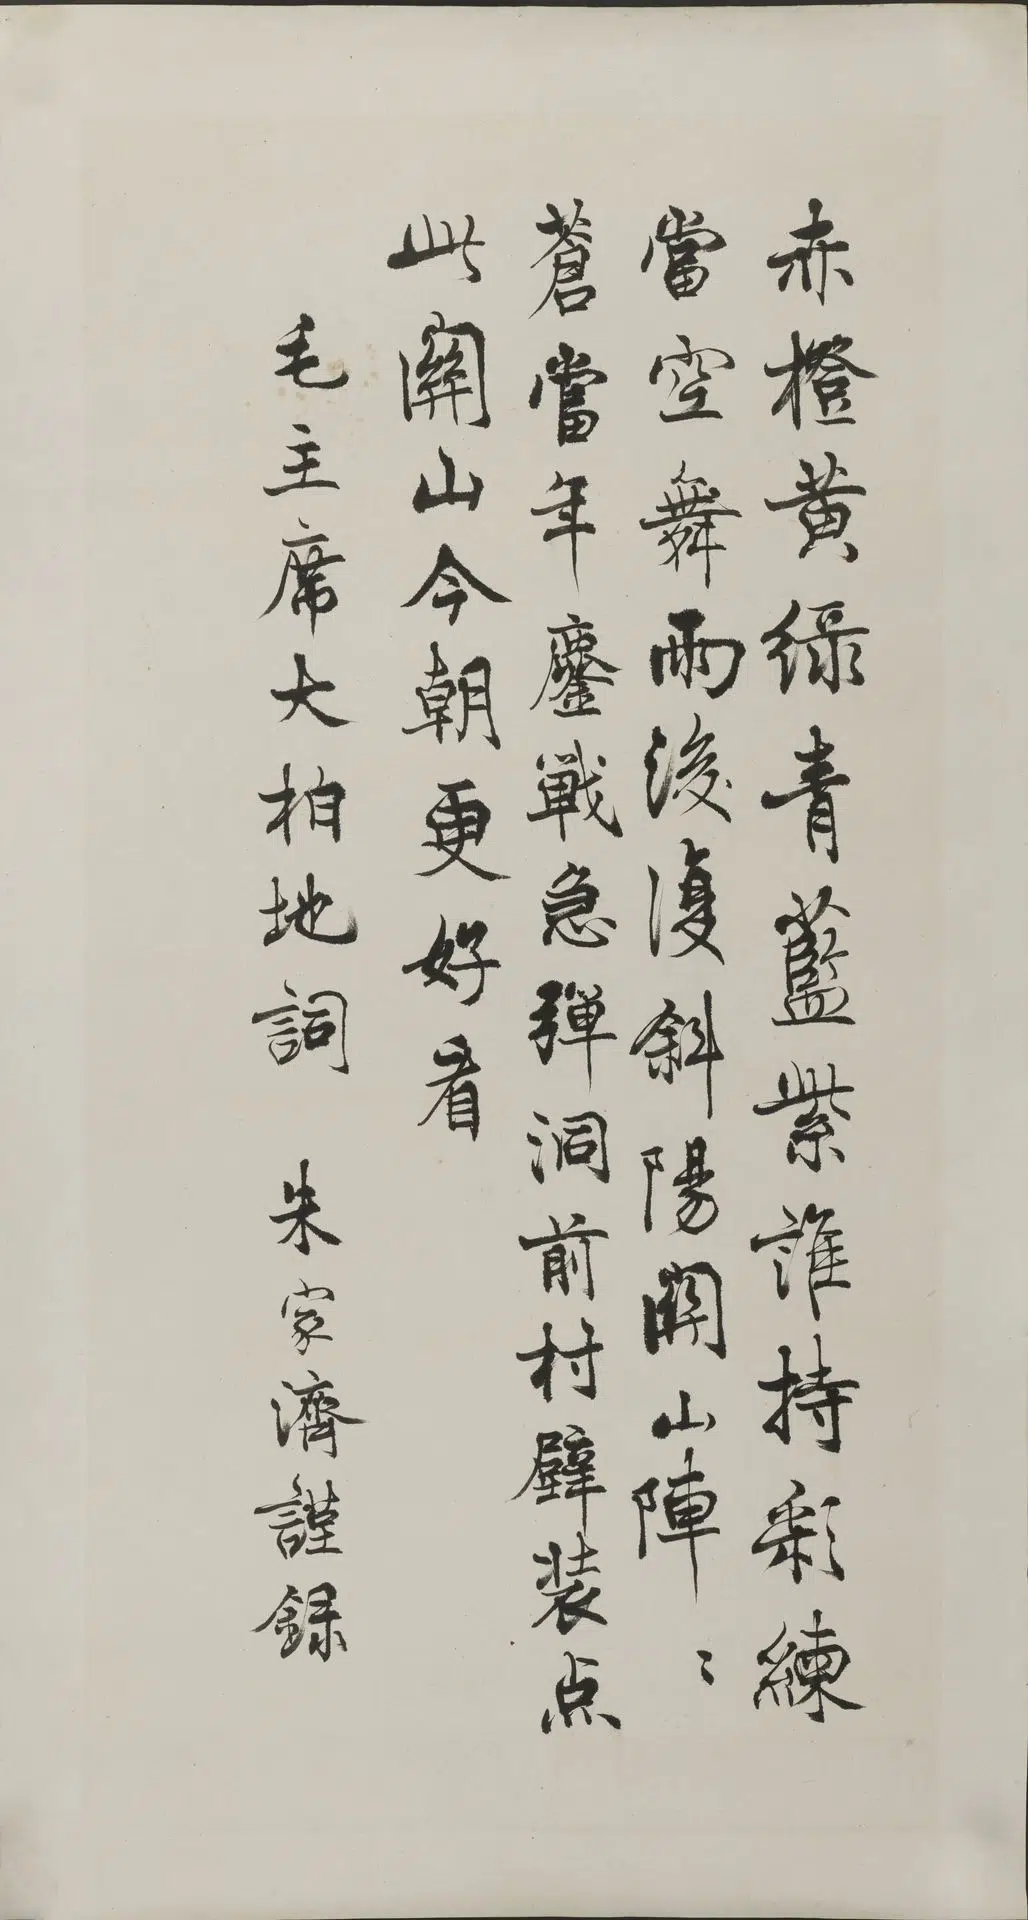 赤橙黄绿青藍紫誰持彩練
當空舞雨後復斜陽関山陣〻
蒼當年鏖戰急彈洞前村壁装点
此関山今朝更好看
毛主席大柏地詞　朱家濟謹録